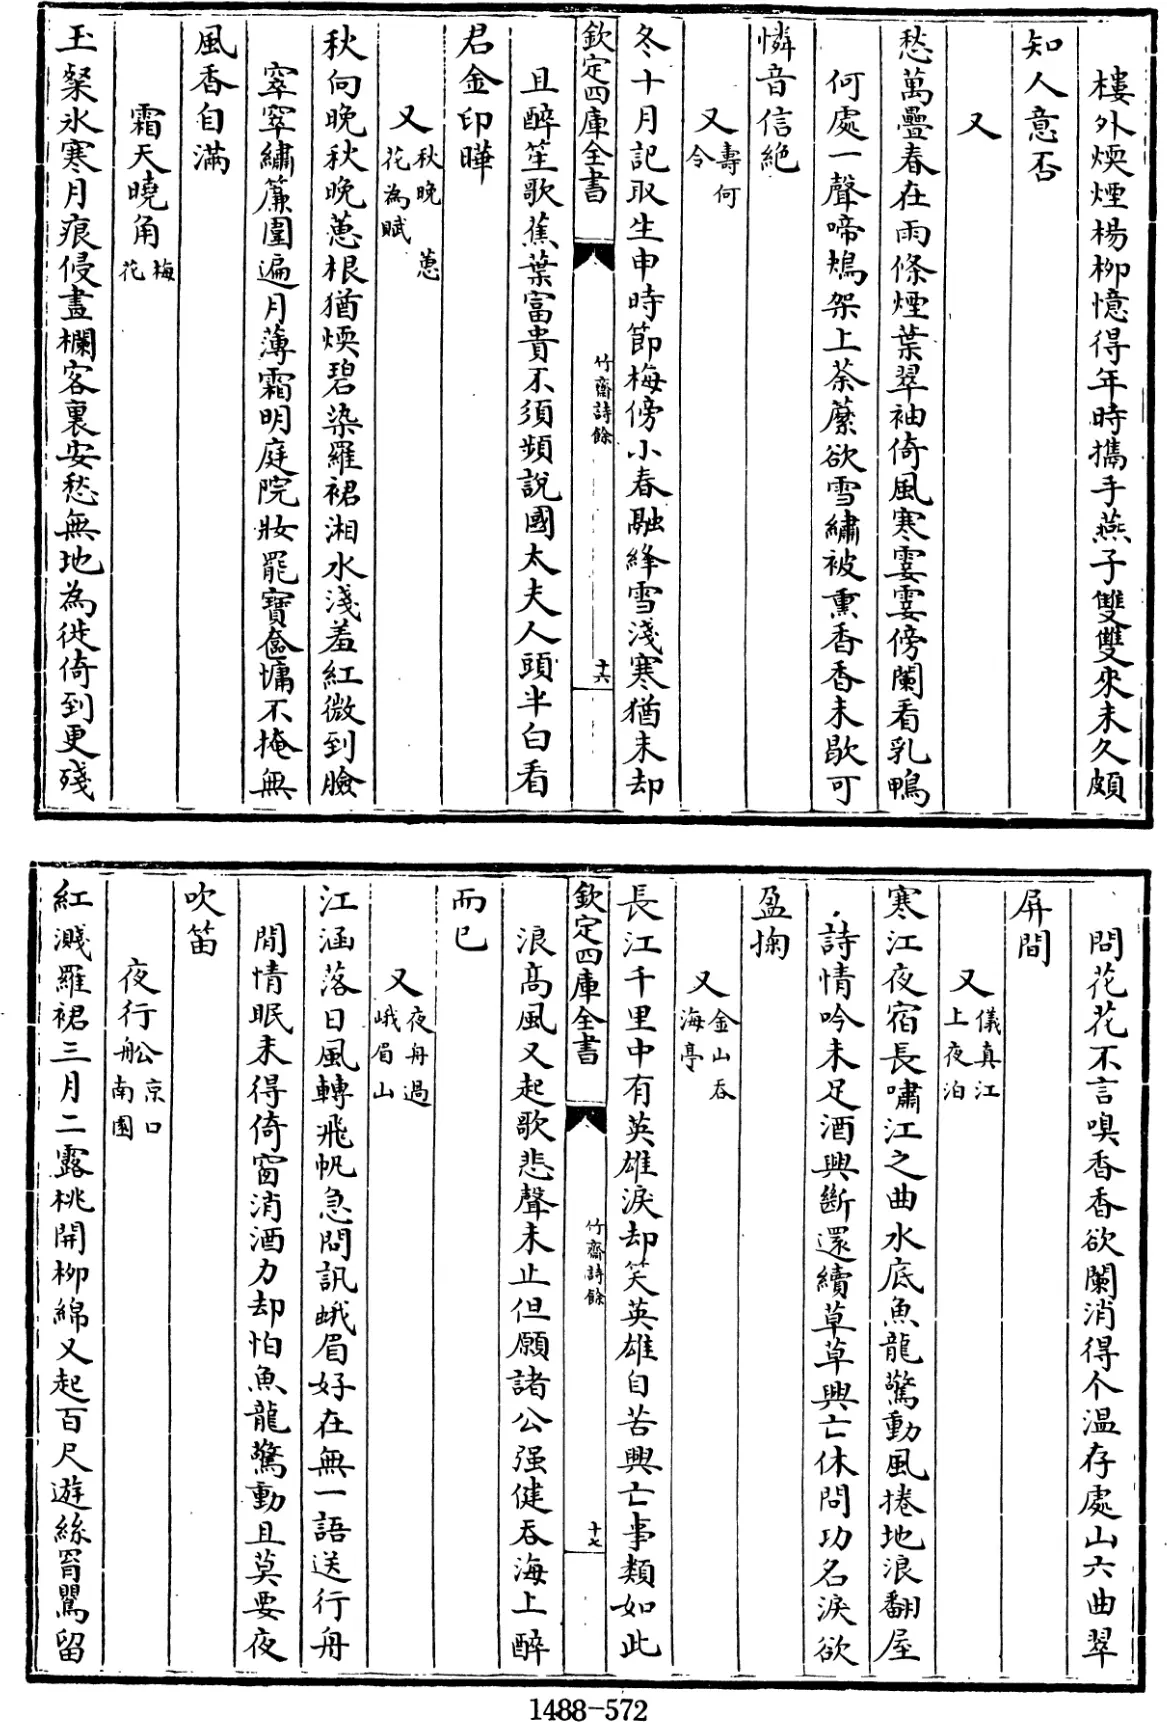 樓外煗煙楊柳憶得年時攜手燕子雙雙來未久頗
知人意否
又
愁萬疊春在雨條煙葉翠袖倚風寒霎霎傍闌看乳鴨
何處一聲啼鴂架上荼䕷欲雪繡被熏香香未歇可
憐音信絶
又壽何令
冬十月記取生申時節梅傍小春融絳雪淺寒猶未却
欽定四庫全書
竹齋詩餘
十六
且醉笙歌蕉葉富貴不須頻說國太夫人頭半白看
君金印曄
又秋晚蔥花為賦
秋向晚秋晚蔥根猶煗碧染羅裙湘水淺羞紅微到臉
窣窣繡簾圍遍月薄霜明庭院妝罷寶奩慵不掩無
風香自滿
霜天曉角梅花
玉粲氷寒月痕侵畫欄客裏安愁無地為徙倚到更殘
問花花不言嗅香香欲闌消得个温存處山六曲翠
屏間
又儀真江上夜泊
寒江夜宿長嘯江之曲水底魚龍驚動風捲地浪翻屋
詩情吟未足酒興斷還續草草興亡休問功名淚欲
盈掬
又金山吞海亭
長江千里中有英雄淚却笑英雄自苦興亡事類如此
欽定四庫全書
竹齋詩餘
十七
浪高風又起歌悲聲未止但願諸公强健吞海上醉
而已
又夜舟過峨眉山
江涵落日風轉飛帆急問訊峨眉好在無一語送行舟
閒情眠未得倚窗消酒力却怕魚龍驚動且莫要夜
吹笛
夜行船京口南園
紅濺羅裙三月二露桃開柳綿又起百尺遊絲罥鶯留
1488-572